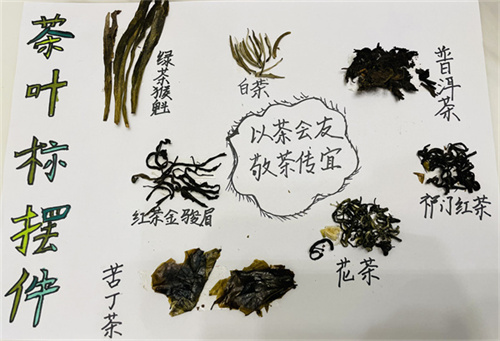 茶叶标摆件
绿茶猴魁
白茶
普洱茶
以茶会友
敬茶传宜
红茶金骏眉
祁门红茶
花茶
苦丁茶